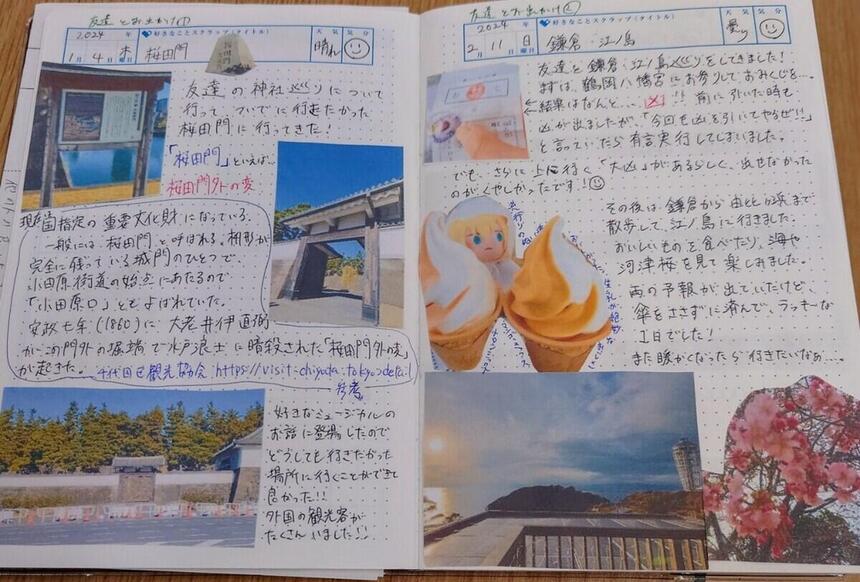 友達とお出かけ①
2024年
♥好きなことスクラップ(タイトル)
天気
気分
1月4日 木曜日
桜田門
晴れ
友達の神社巡りについて
行って、ついでに行きたかった
桜田門に行ってきた!
「桜田門」といえば、
桜田門外の変
現在国指定の重要文化財になっている。
一般には、桜田門と呼ばれる。枡形が
完全に残っている城門のひとつで、
小田原街道の始点にあたるので
「小田原口」ともよばれていた。
安政七年(1860)に、大老井伊直弼
がこの門外の堀端で水戸浪士に暗殺された「桜田門外の変」
が起きた。
千代田区観光協会:https://visit-chiyoda.tokyo>detail
参考
好きなミュージカルの
お話に登場したので
どうしても行きたかった
場所に行くことができて
良かった!!
外国の観光客が
たくさんいました!!
友達とお出かけ②
2024年
♥好きなことスクラップ(タイトル)
天気
気分
2月11日 日曜日
鎌倉・江ノ島
友達と鎌倉・江ノ島巡りをしてきました!
まずは、鶴岡八幡宮にお参りしておみくじを…。
←結果はなんと…、凶!! 前に引いた時も
凶が出ましたが、「今回も凶を引いてやるぜ!!」
と言っていたら有言実行してしまいました。
でも、さらに上に行く「大凶」があるらしく、出せなかった
のがくやしかったです!
その後は、鎌倉から由比ヶ浜まで
散歩して、江ノ島に行きました。
おいしいものを食べたり、海や
河津桜を見て楽しみました。
雨の予報が出ていたけど、
傘をささずに済んで、ラッキーな
1日でした!
また暖かくなったら行きたいなぁ…。